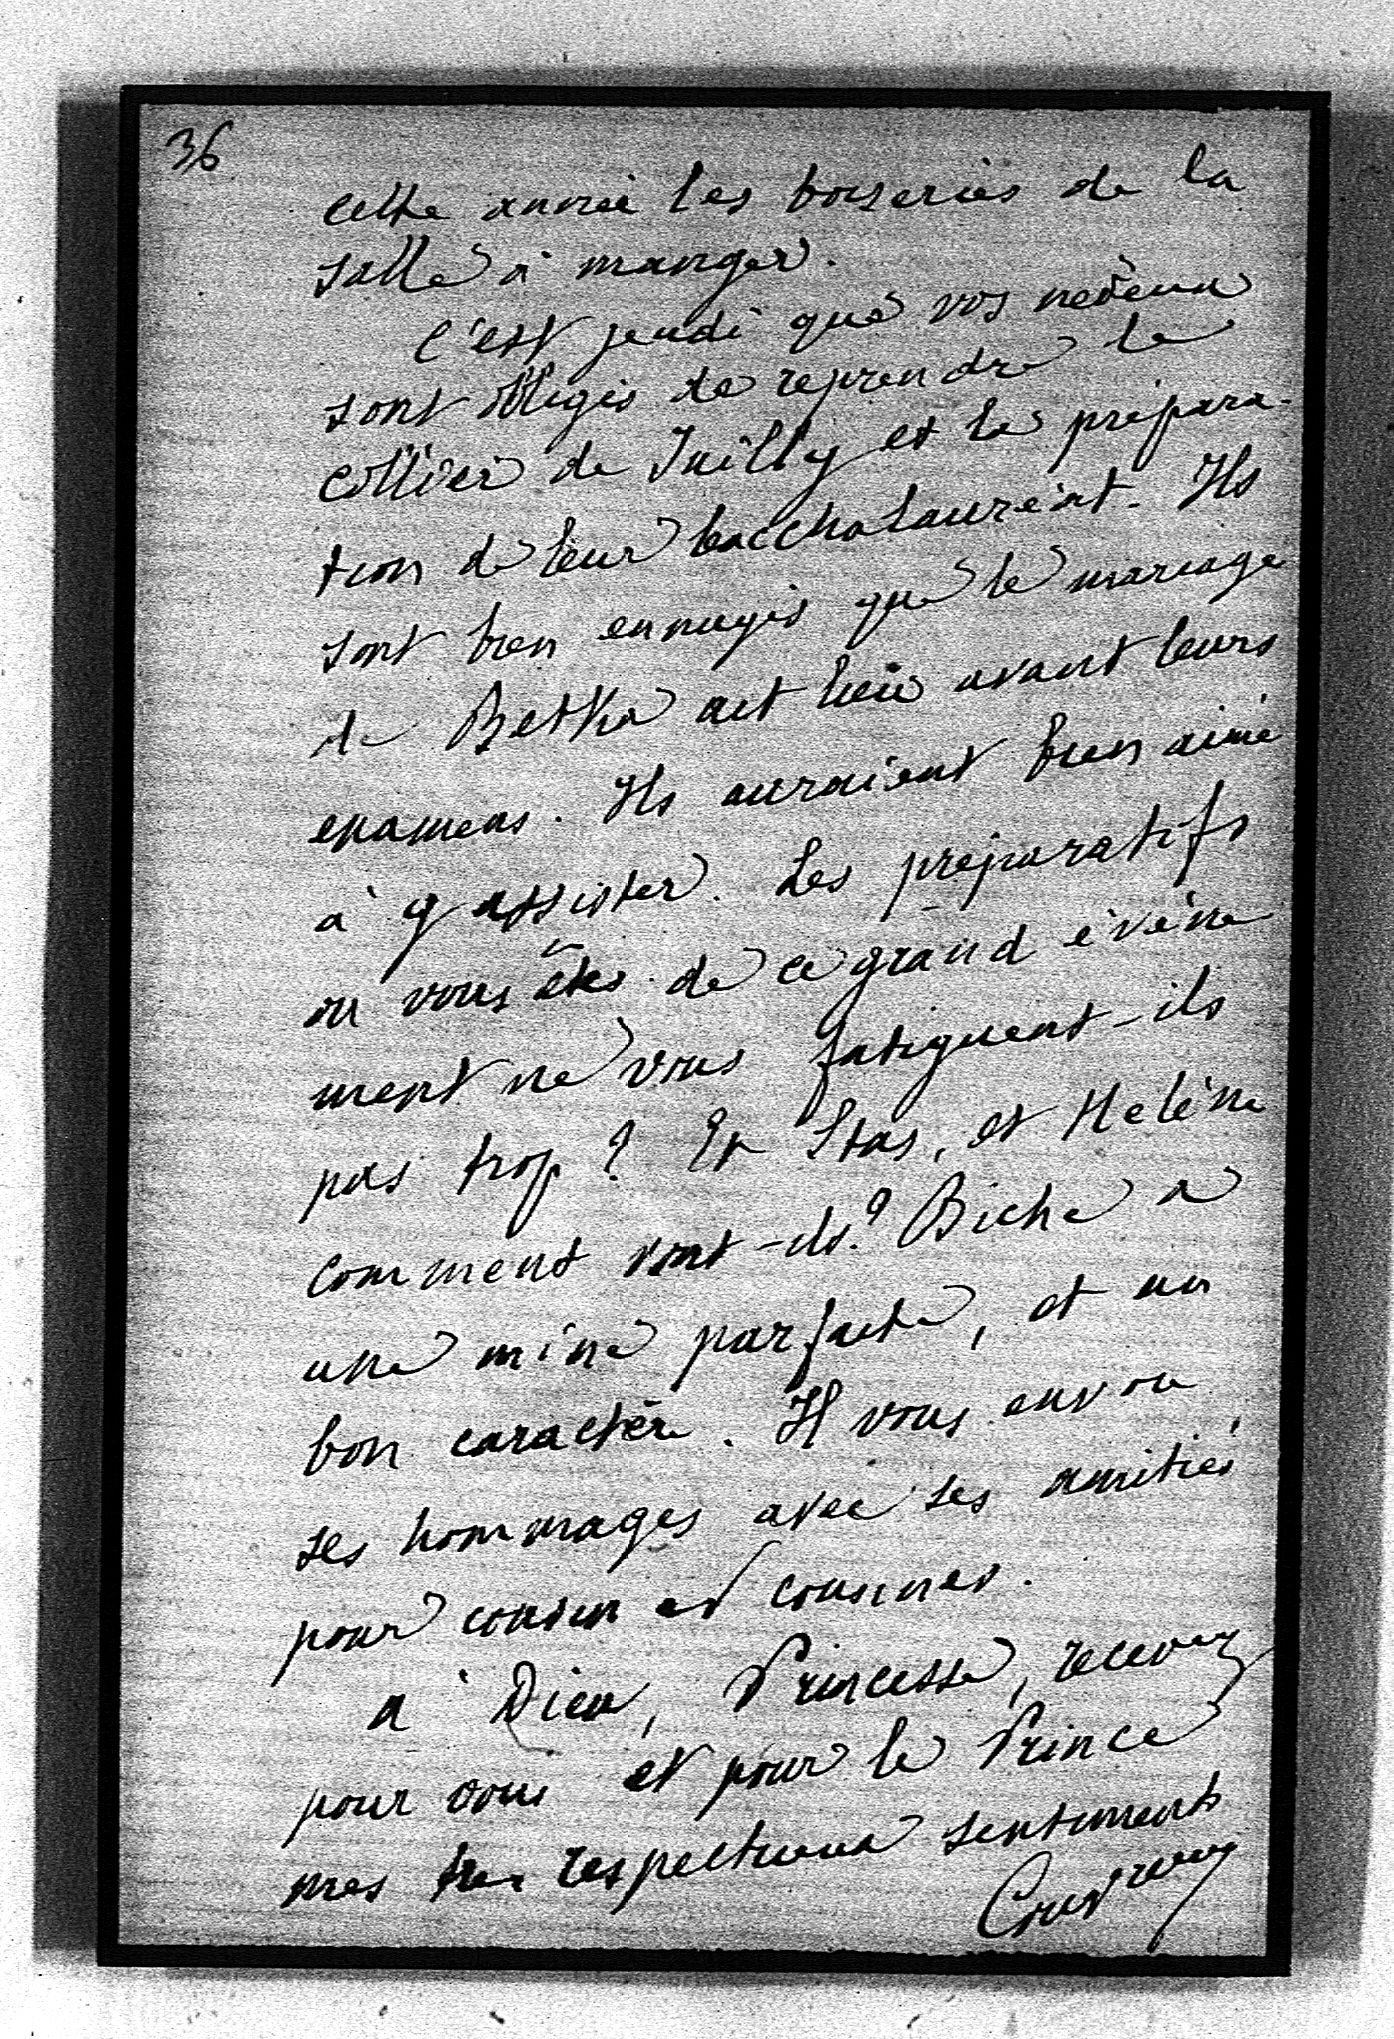 36
cette année les boiseries de la
salle à manger.
C'est jeudi que vos neveux
sont obligés de reprendre le
collier de Juilly et la prépara-
tion de leur baccholauréat. Ils
sont bien ennuyés que le mariage
de Betka ait lieu avant leurs
examens. Ils auraient bien aimé
à y assister. Les préparatifs
ou vous êtes de ce grand évène
ment ne vous fatiguent-ils
pas trop? Et Stas, et Helène
comment vont-ils? Biche a
une mine parfaite, et un
bon caractère. Il vous envoie
ses hommages avec ses amitiés
pour cousin et cousines.
A Dieu, Princesse, recevez
pour vous et pour le Prince
mes très respectueux sentiments